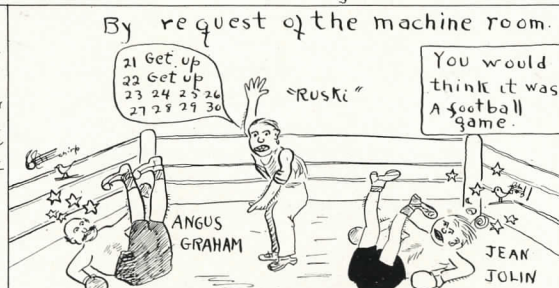 By request of the machine room.
21 Get up
22 Get up
23 24 25 26
27 28 29 30
"Ruski"
You would
think it was
A football
game.
ANGUS
GRAHAM
JEAN
JOLIN